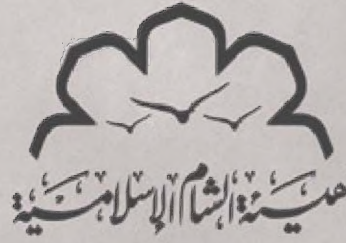 هيئة الشام الإسلامية